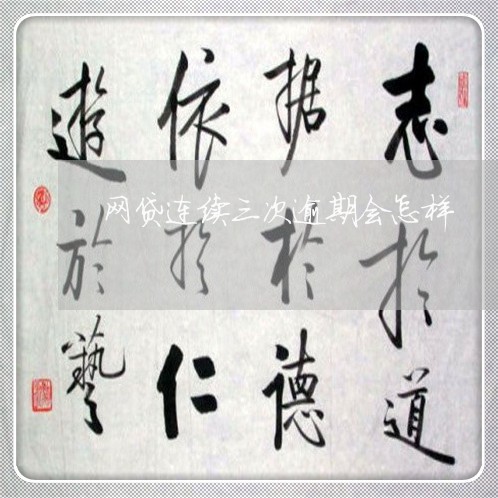 志於道
据於德
依於仁
遊於藝
网贷连续三次逾期会怎样